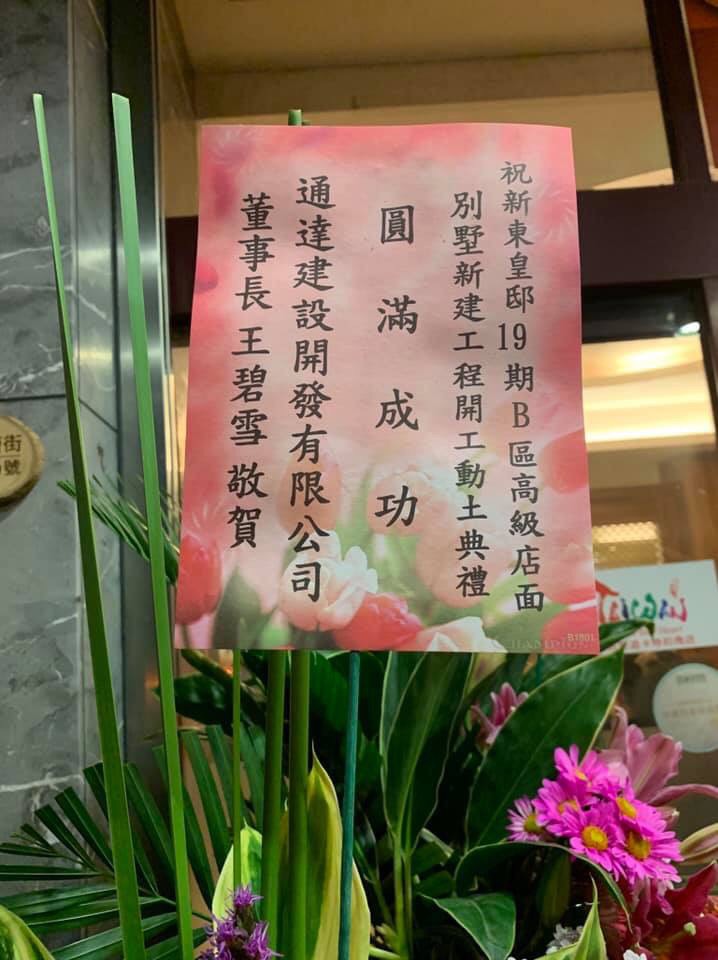 祝新東皇邸19期B區高級店面
別墅新建工程開工動土典禮
圓滿成功
通達建設開發有限公司
董事長王碧雪敬賀
B1801
街
號
Taiwan